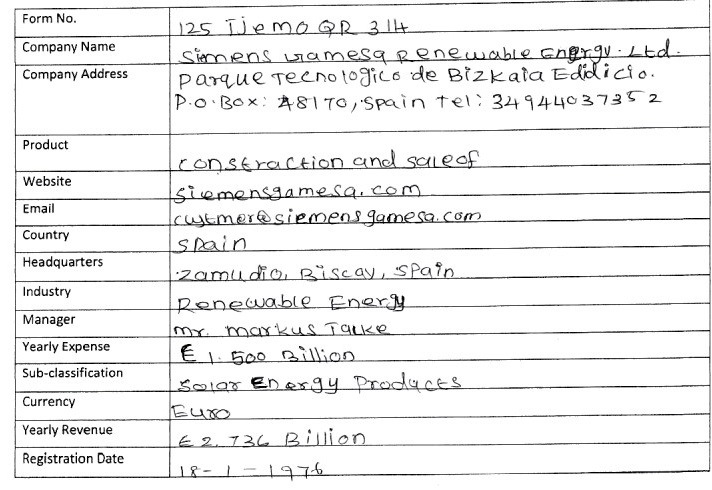 Form No. 125 IJemo QR 314
Company Name Simens Gamesa Renewable Energy. Ltd.
Company Address Parque Tecnologico de Bizkaia Edidicio.
P.O.Box: 48170, Spain tel: 34944037352
Product constraction and sale of
Website siemensgamesa.com
Email custmer@siemensgamesa.com
Country Spain
Headquarters Zamudio, Biscay, Spain
Industry Renewable Energy
Manager mr. markus Tacke
Yearly Expense € 1.500 Billion
Sub-classification Solar Energy Products
Currency Euro
Yearly Revenue € 2.736 Billion
Registration Date 18-1-1976